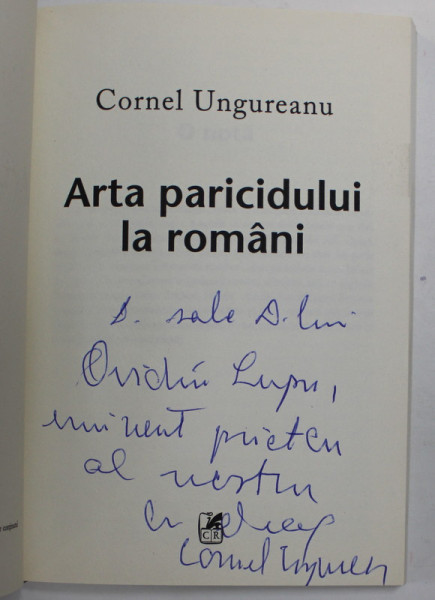 Cornel Ungureanu
Arta paricidului
la români
D. sale D-lui
Ovidiu Lupu,
eminent prieten
al nostru
cu drag
CR
Cornel Ungureanu